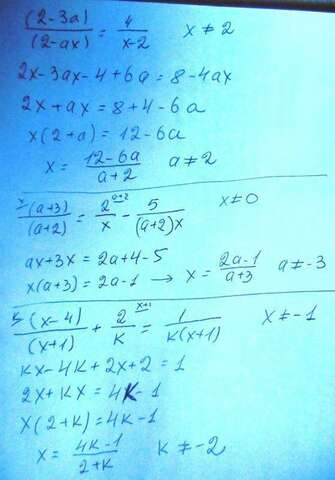 (2-3a)/(2-ax) = 4/(x-2) x ≠ 2
2x-3ax-4+6a = 8-4ax
2x+ax = 8+4-6a
x(2+a) = 12-6a
x = (12-6a)/(a+2) a ≠ 2
x (a+3)/(a+2) = 2 a+2/x - 5/((a+2)x) x ≠ 0
ax+3x = 2a+4-5
x(a+3) = 2a-1 → x = (2a-1)/(a+3) a ≠ -3
k (x-4)/(x+1) + 2/k x+1 = 1/(k(x+1)) x ≠ -1
kx-4k+2x+2 = 1
2x+kx = 4k-1
x(2+k) = 4k-1
x = (4k-1)/(2+k) k ≠ -2